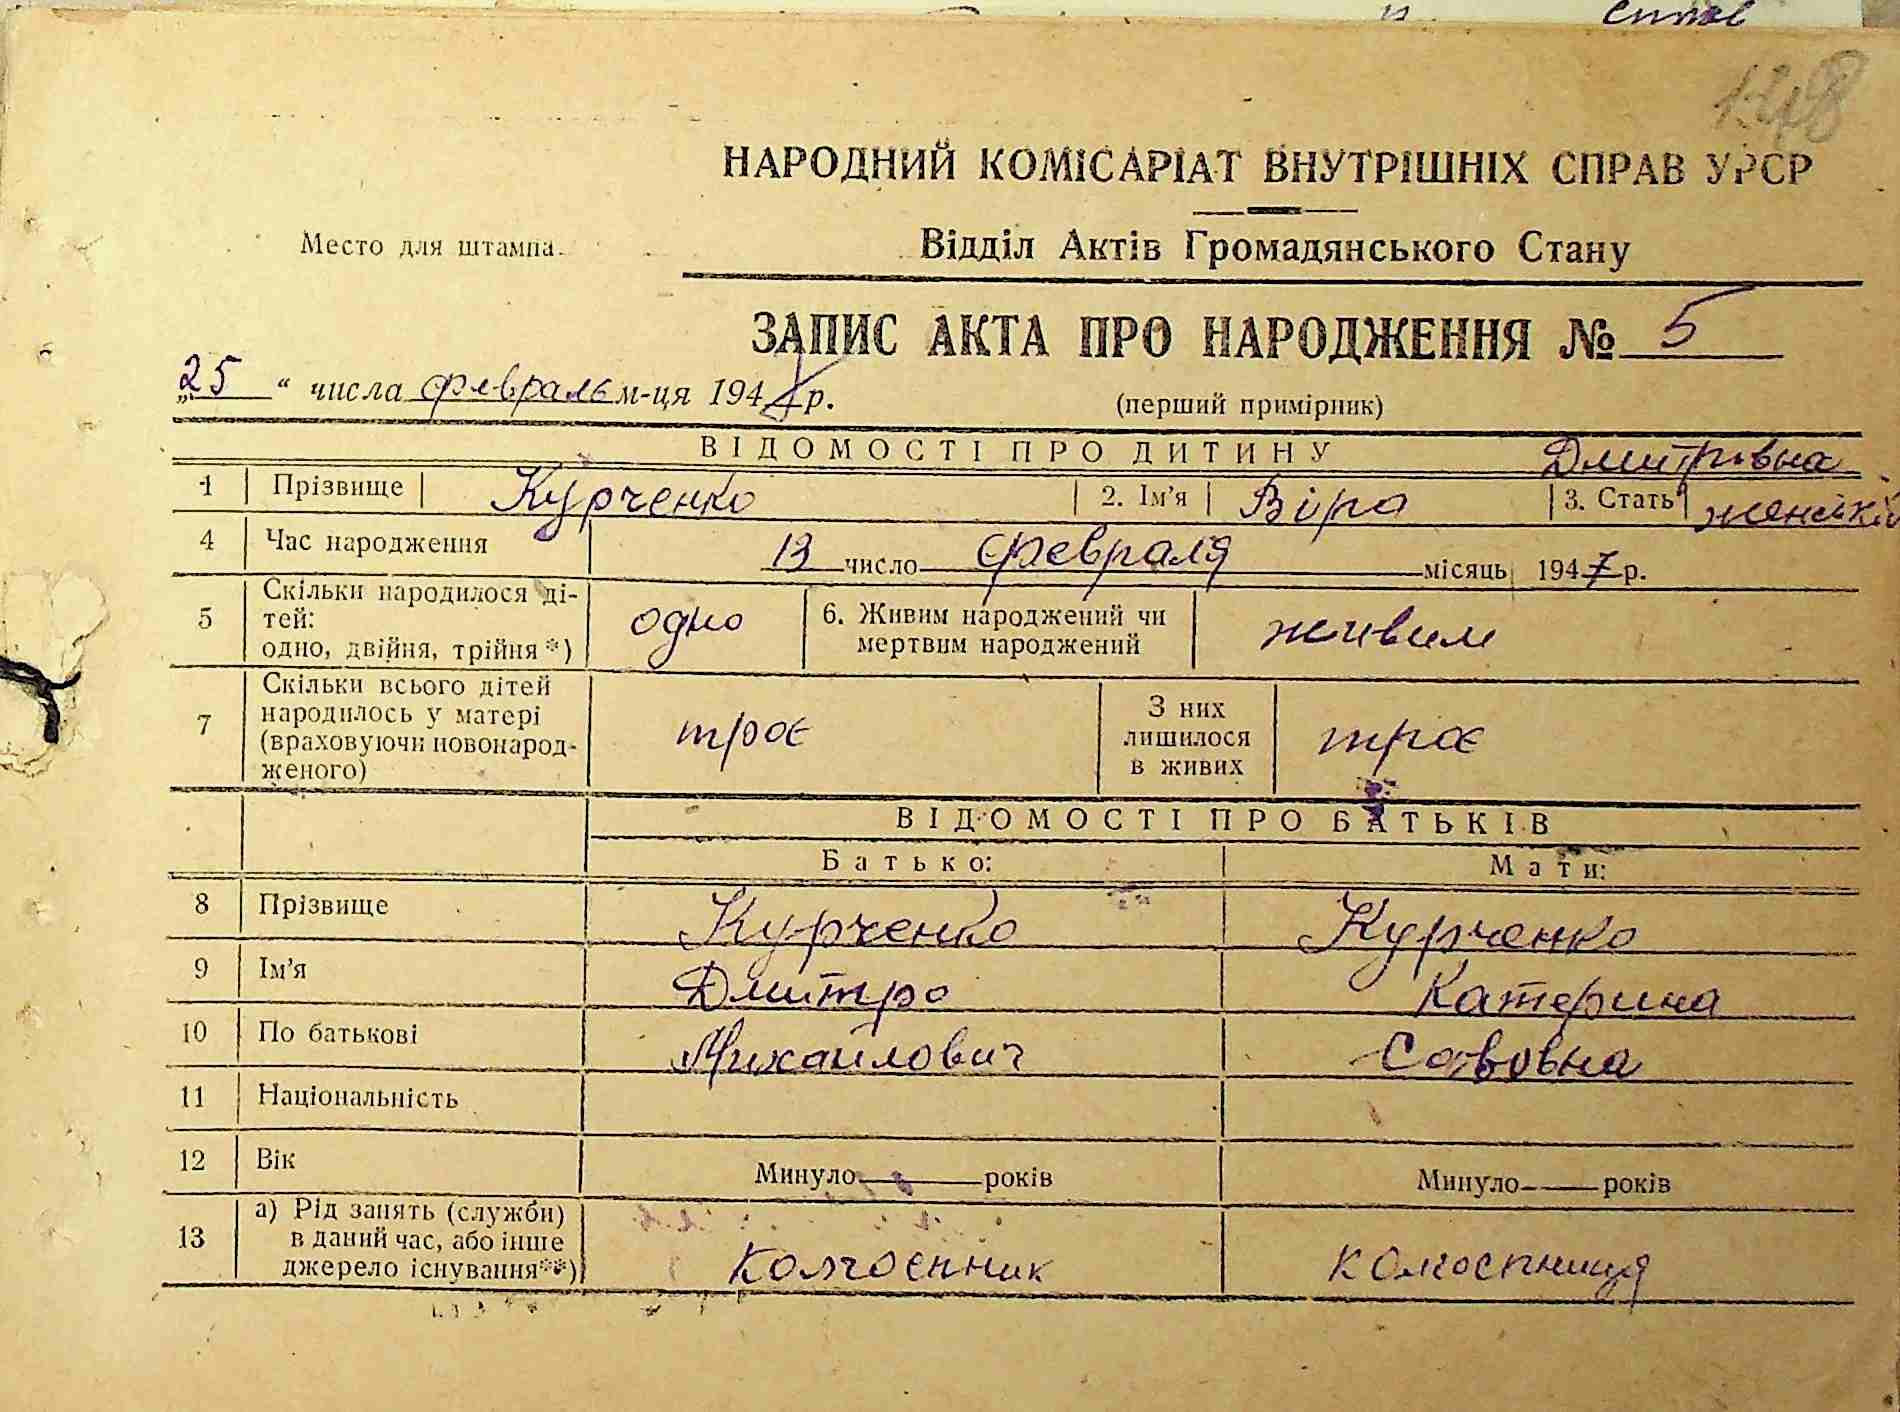 148
НАРОДНИЙ КОМІСАРІАТ ВНУТРІШНІХ СПРАВ УРСР
Место для штампа.
Відділ Актів Громадянського Стану
ЗАПИС АКТА ПРО НАРОДЖЕННЯ № 5
„25“ числа февраль м-ця 194 р.
(перший примірник)
ВІДОМОСТІ ПРО ДИТИНУ
Дмитровна
1 Прізвище Курченко 2. Ім'я Віра 3. Стать женскій
4 Час народження 13 число февраля місяць 1947 р.
5 Скільки народилося ді-
тей:
одно, двійня, трійня*) одно 6. Живим народжений чи
мертвим народжений живим
7 Скільки всього дітей
народилось у матері
(враховуючи новонарод-
женого) троє З них
лишилося
в живих троє
ВІДОМОСТІ ПРО БАТЬКІВ
Батько: Мати:
8 Прізвище Курченко Курченко
9 Ім'я Дмитро Катерина
10 По батькові Михаилович Савовна
11 Національність
12 Вік Минуло років Минуло років
13 а) Рід занять (служби)
в даний час, або інше
джерело існування**) Колгоспник колгоспниця